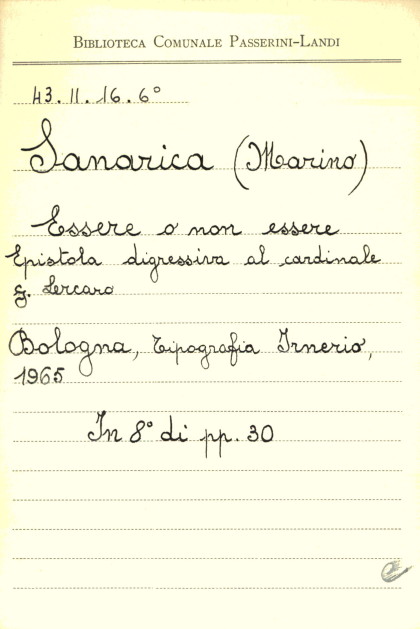 BIBLIOTECA COMUNALE PASSERINI-LANDI
43.II.16.6°
Sanarica (Marino)
Essere o non essere
Epistola digressiva al cardinale
G. Lercaro
Bologna, Tipografia Irnerio,
1965
In 8° di pp. 30